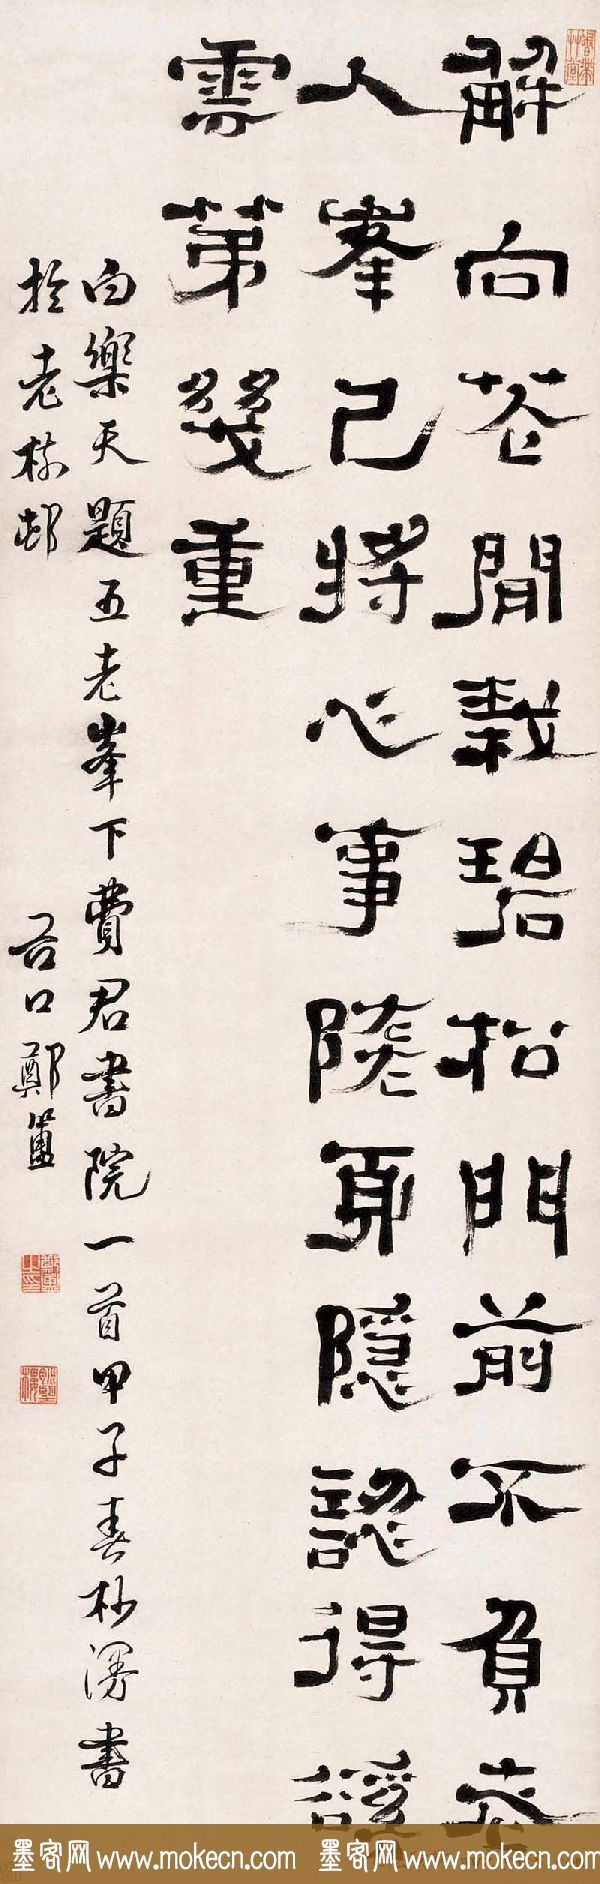 解向花間栽碧松門前不負老
人峯已將心事隨身隱認得谿
雲第幾重
白樂天題五老峯下費君書院一首甲子春杪漫書
於老梅邨
谷口鄭簠
鄭簠之印
墨客网 www.mokecn.com 墨客网 www.mokecn.com